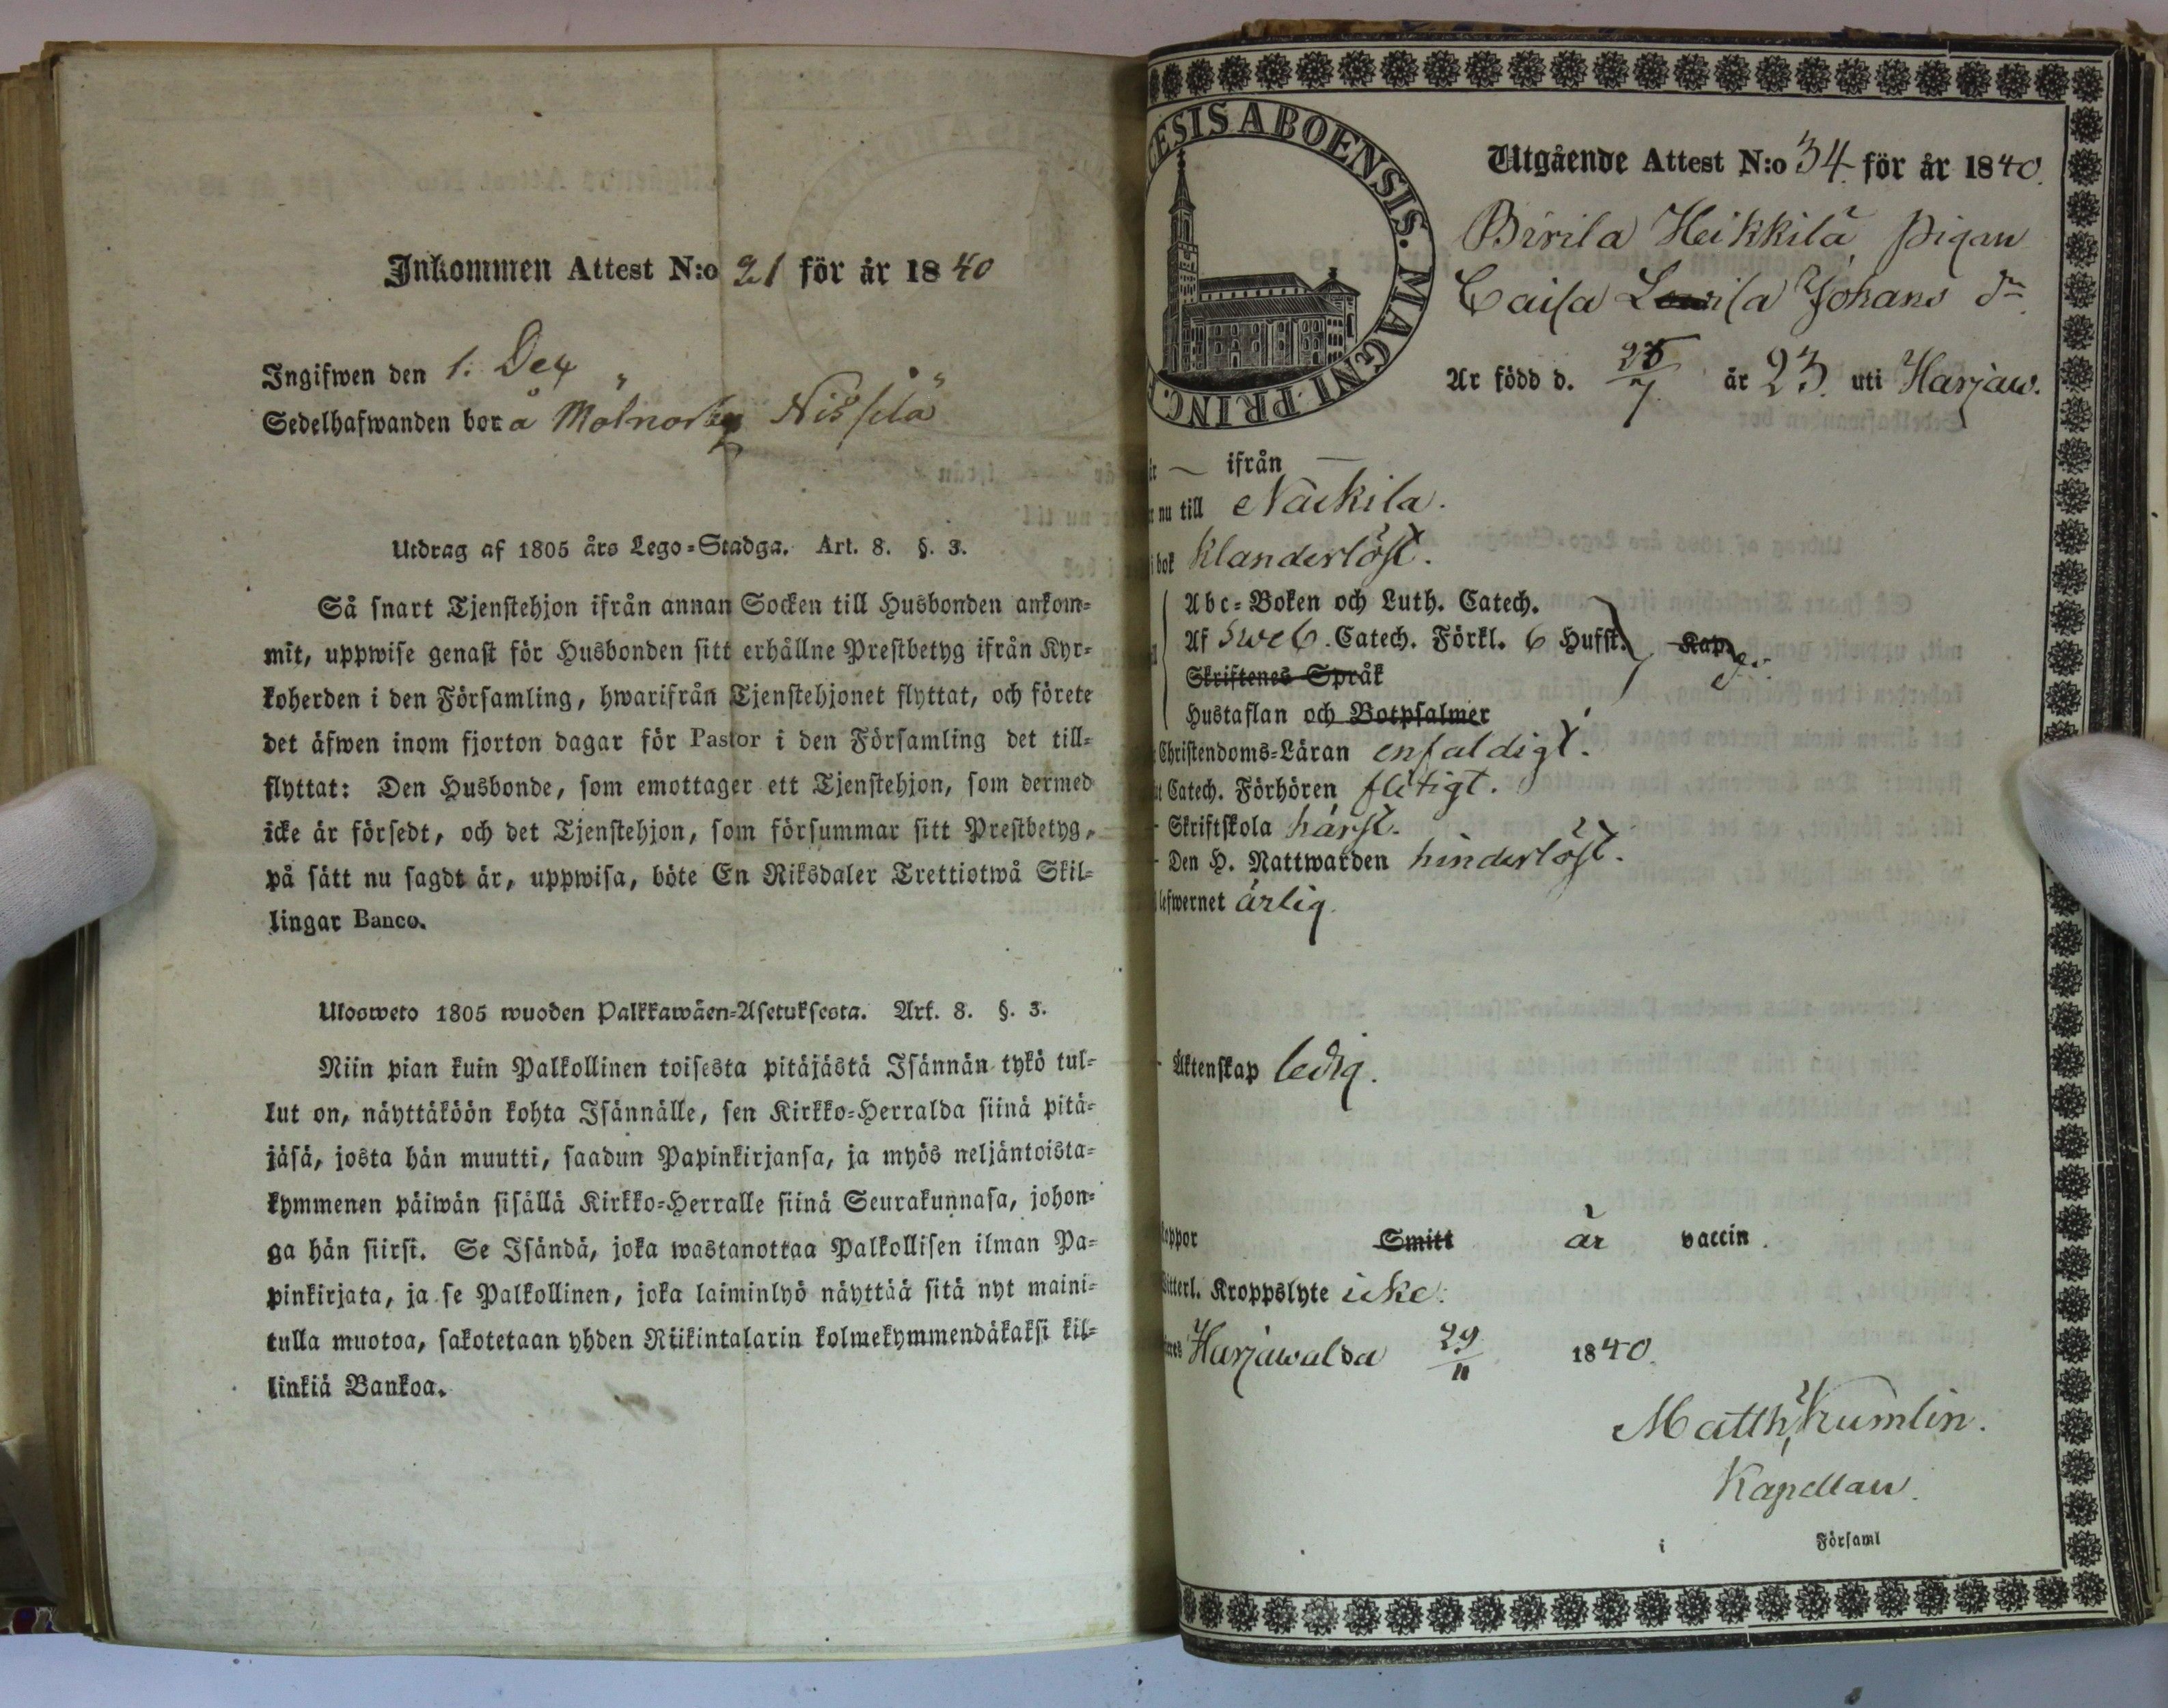 Inkommen Attest N:o 21 för år 1840
Ingifwen den 1. Dec
Sedelhafwanden bor å Molnorby Nissilä
Utdrag af 1805 års Lego-Stadga. Art. 8. §. 3.
Så snart Tjenstehjon ifrån annan Socken till Husbonden ankom-
mit, uppwise genast för Husbonden sitt erhållne Prestbetyg ifrån Kyr-
koherden i den Församling, hwarifrån Tjenstehjonet flyttat, och förete
det äfwen inom fjorton dagar för Pastor i den Församling det till-
flyttat: Den Husbonde, som emottager ett Tjenstehjon, som dermed
icke är försedt, och det Tjenstehjon, som försummar sitt Prestbetyg,
på sätt nu sagdt är, uppwisa, böte En Riksdaler Trettiotwå Skil-
lingar Banco.
Ulosweto 1805 wuoden Palkkawäen-Asetuksesta. Art. 8. §. 3.
Niin pian kuin Palkollinen toisesta pitäjästä Isännän tykö tul-
lut on, näyttäköön kohta Isännälle, sen Kirkko-Herralda siinä pitä-
jäsä, josta hän muutti, saadun Papinkirjansa, ja myös neljäntoista-
kymmenen päiwän sisällä Kirkko-Herralle siinä Seurakunnasa, johon-
ga hän siirsi. Se Isändä, joka wastanottaa Palkollisen ilman Pa-
pinkirjata, ja se Palkollinen, joka laiminlyö näyttää sitä nyt maini-
tulla muotoa, sakotetaan yhden Riikintalarin kolmekymmendäkaksi kil-
linkiä Bankoa.
CESIS ABOENSIS. MAGNI PRINC.
Utgående Attest N:o 34. för år 1840.
Birila Heikkilä pigan
Caisa Lovisa Johans dr.
Är född d. 25/7 år 23. uti Harjaw.
ifrån
nu till Nackila.
i bok klanderlöst.
Abc-Boken och Luth. Catech.
Af Sweb. Catech. Förkl. 6 Hufst. Kap.
Skriftenes Språk
Hustaflan och Botpsalmer
Christendoms-Läran enfaldigt.
Catech. Förhören flitigt.
Skriftskola härst.
Den H. Nattwarden hinderlöst.
lefwernet ärlig.
Äktenskap ledig.
koppor Smitt är vaccin.
Witterl. Kroppslyte icke.
Harjawalda 29/11 1840.
Matth. Kumlin.
Kapellan.
i Församl